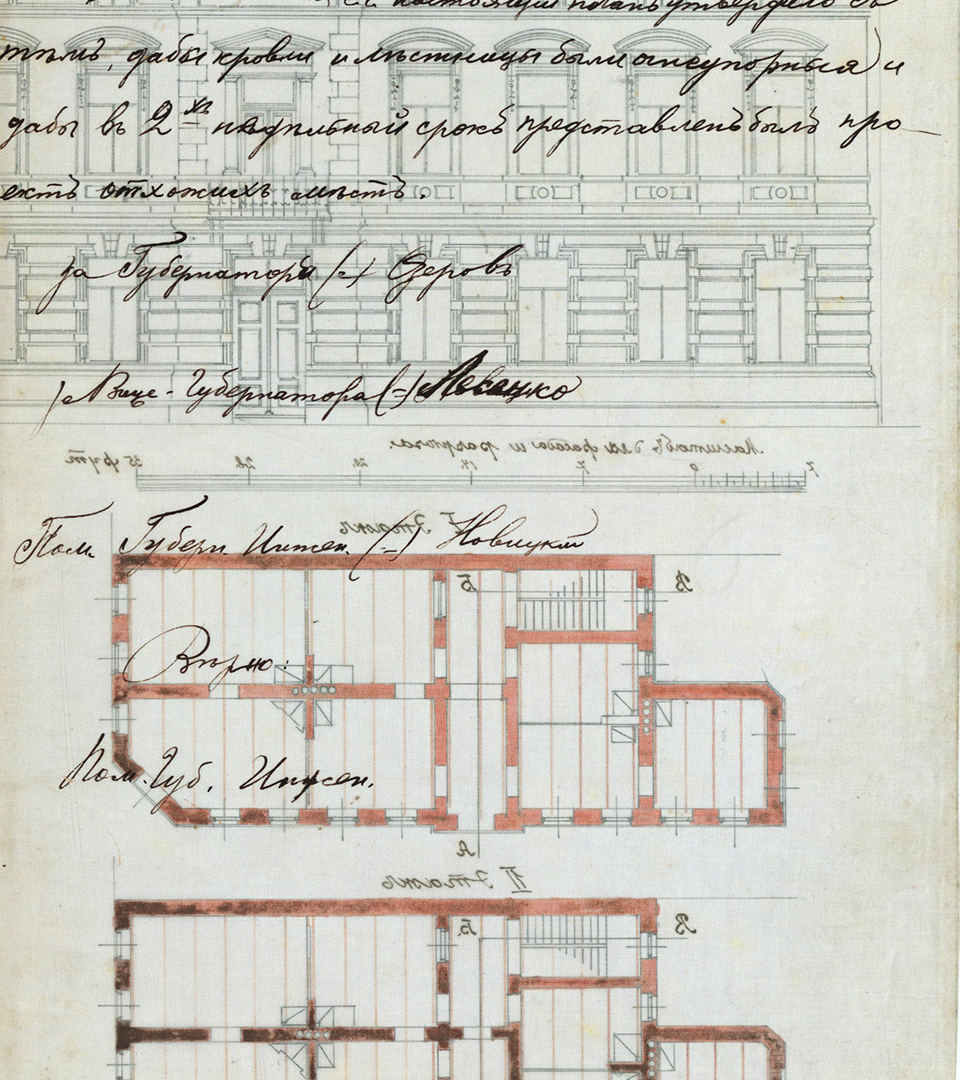 настоящій планъ утверждено съ
тѣмъ, дабы кровли и лѣстницы были огнеупорныя и
дабы въ 2хъ недѣльный срокъ представленъ былъ про-
ектъ отхожихъ мѣстъ.
за Губернатора (=) Озеровъ
за Вице-Губернатора (=)
Масштабъ для фасада и разрѣза.
35 фут 28 21 14 7 0 7
I Этажъ
Пом. Губерн. Инжен. (=) Новицкій
Б В
Вѣрно:
Пом. Губ. Инжен.
А
II Этажъ
Б. В